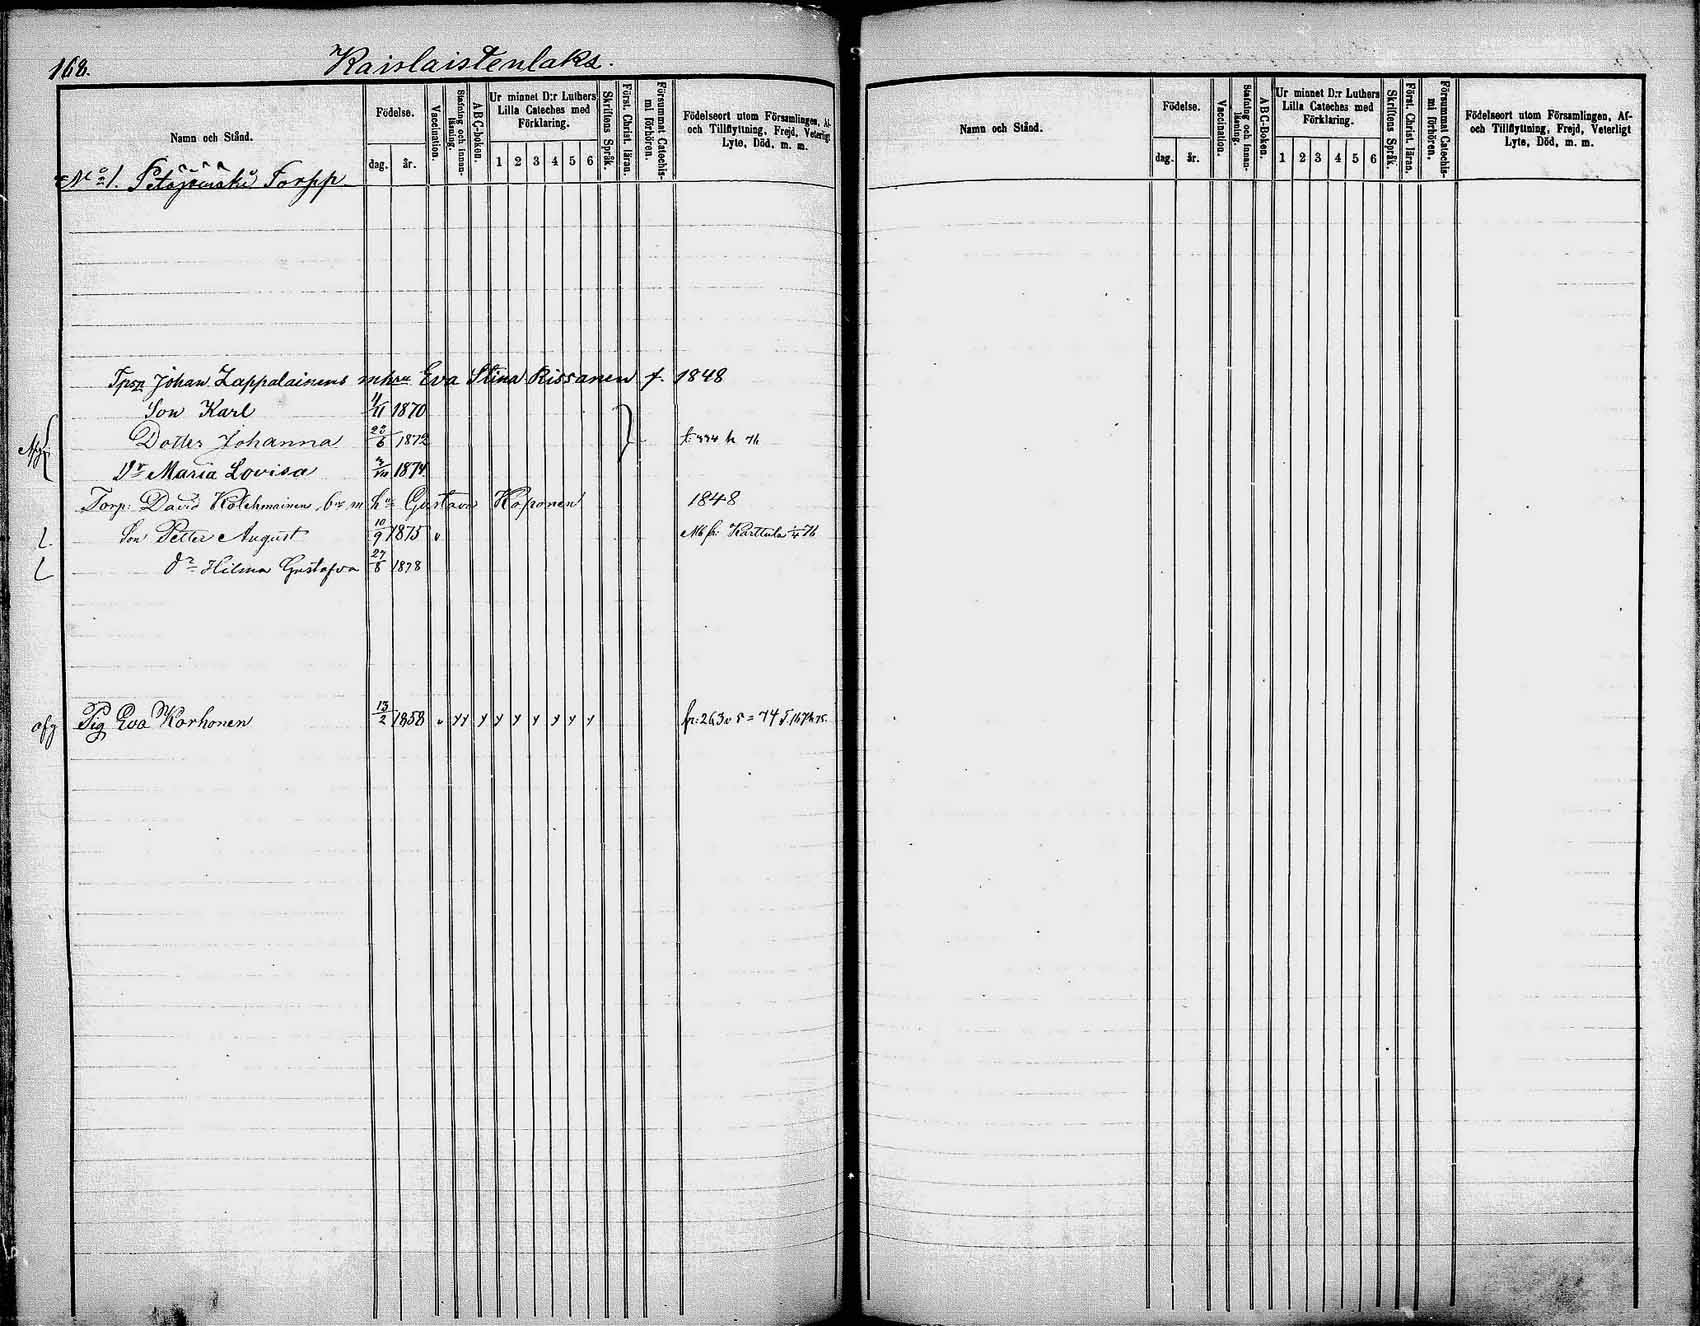 168.
Kaislaistenlaks.
Namn och Stånd.
Födelse.
dag.
år.
Vaccination.
Stafning och Innan-läsning.
ABC-boken.
Ur minnet D:r Luthers
Lilla Cateches med
Förklaring.
1 2 3 4 5 6
Skriftens Språk.
Först. Christ. läran.
Försummat Catechis-
mi förhören.
Födelseort utom Församlingen, Af-
och Tillflyttning, Frejd, Veterligt
Lyte, Död, m. m.
No 1. Torpp
Tpsn Johan Lappalainens mhru Eva Stina Rissanen f. 1848
Son Karl 11/11 1870
Dotter Johanna 23/6 1872
Dr Maria Lovisa 1874
Torp: David Kolehmainens m hu Gustava Koponen 1848
Son Petter August 10/9 1875 v Mb fr: Karttula
Dr Hilma Gustafva 27/8 1878
afg Pig Eva Korhonen 13/2 1858
Namn och Stånd.
Födelse.
dag.
år.
Vaccination.
Stafning och Innan-läsning.
ABC-Boken.
Ur minnet D:r Luthers
Lilla Cateches med
Förklaring.
1 2 3 4 5 6
Skriftens Språk.
Först. Christ. läran.
Försummat Catechis-
mi förhören.
Födelseort utom Församlingen, Af-
och Tillflyttning, Frejd, Veterligt
Lyte, Död, m. m.